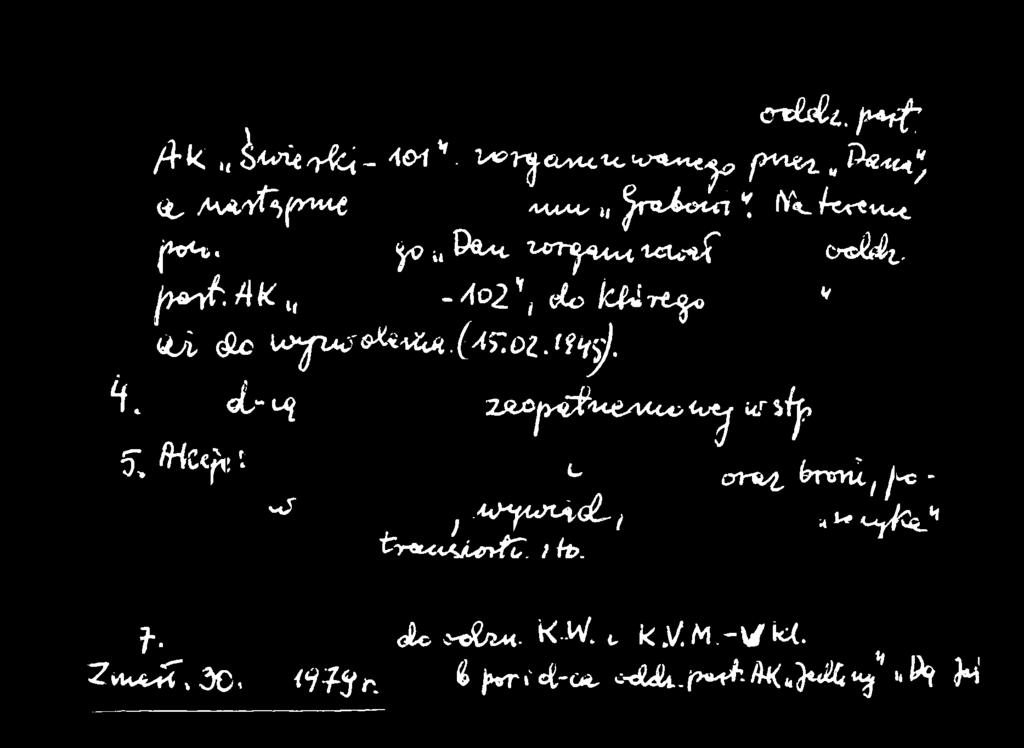 oddz. part.
AK „Świerki-101". zorganizowanego przez „Dana",
a następnie mu „Grabowi". Na terenie
pow. go „Dan zorganizował oddz.
part. AK „ -102", do którego "
aż do wyzwolenia. (15.02.1945).
4. d-cą zaopatrzeniowej w stp.
5. Akcje: i oraz broni, po-
w , wywiad,
transport. itp.
7. do odzn. K.W. i K.V.M. - V kl.
Zmarł. 30. 1979 r. b por i d-ca oddz. part. AK „Jedliny"